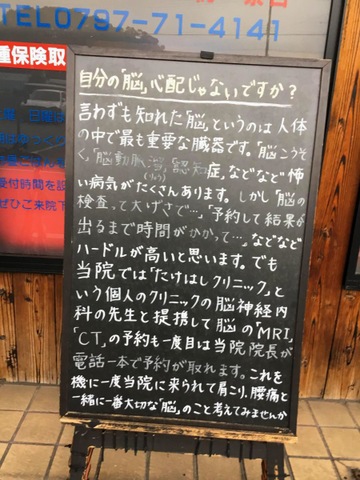 TEL0797-71-4141
種保険取
受付時間を設
ぜひご来院下
自分の「脳」心配じゃないですか?
言わずも知れた「脳」というのは人体
の中で最も重要な臓器です。「脳こうそ
く」「脳動脈瘤」(りゅう)「認知症」などなど怖
い病気がたくさんあります。しかし「脳の
検査って大げさで…」「予約して結果が
出るまで時間がかかって…」などなど
ハードルが高いと思います。でも
当院では「たけはしクリニック」と
いう個人のクリニックの脳神経内
科の先生と提携して脳の「MRI」
「CT」の予約も一度目は当院 院長が
電話一本で予約が取れます。これを
機に一度当院に来られて肩こり、腰痛と
一緒に一番大切な「脳」のこと考えてみませんか